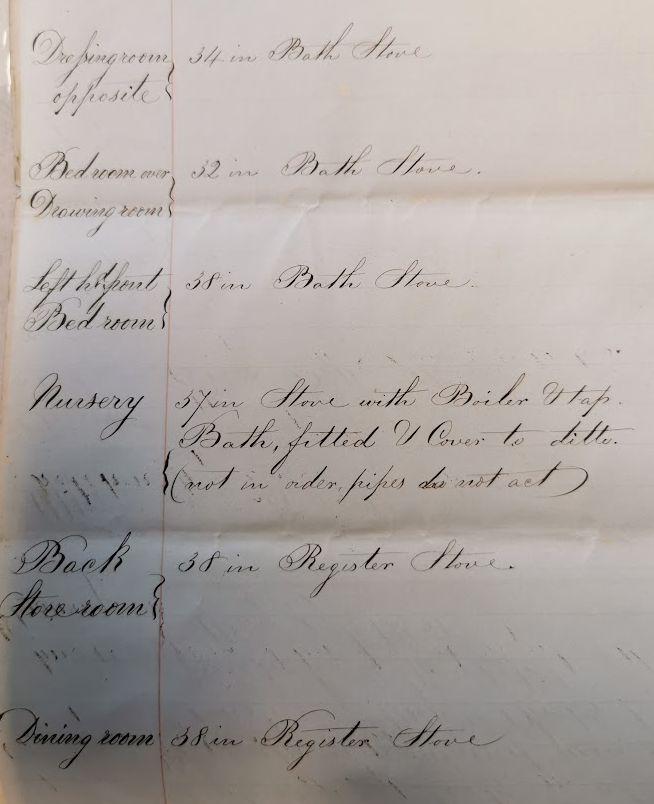 Dressing room } 34 in Bath Stove
opposite
Bed room over } 32 in Bath Stove.
Drawing room
Left hd front } 38 in Bath Stove.
Bed room
Nursery 37 in Stove with Boiler & tap.
Bath, fitted & Cover to ditto.
(not in order, pipes do not act)
Back } 38 in Register Stove.
Store room
Dining room 38 in Register Stove